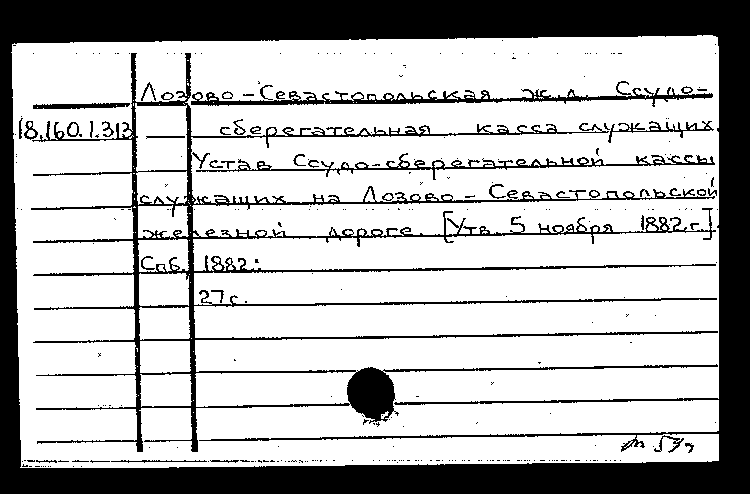 Лозово-Севастопольская ж.д. Ссудо-
18.160.1.313 сберегательная касса служащих.
Устав Ссудо-сберегательной кассы
служащих на Лозово-Севастопольской
железной дороге. [Утв. 5 ноября 1882.г.].
Спб., 1882.
27 с.